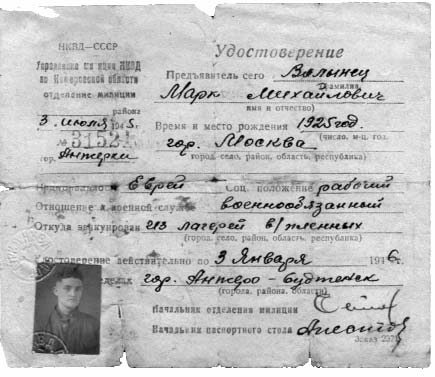 НКВД—СССР
Удостоверение
Управление милиции НКВД
по Кемеровской области
отделение милиции
Предъявитель сего Валынец
фамилия
Марк Михайлович
имя и отчество)
района
3 июля 1945 г.
Время и место рождения 1925 год
(число, м-ц, год.
№ 31524
гор. Москва
гор. Анжерки
город, село, район, область, республика)
Национальность Еврей Соц. положение рабочий
Отношение к военной службе военнообязанный
Откуда эвакуирован из лагерей в/пленных
(город, село, район, область, республика)
Удостоверение действительно по 3 Января 1946 г.
гор. Анжеро-Судженск
(города, района, области)
Начальник отделения милиции
Начальник паспортного стола
Заказ